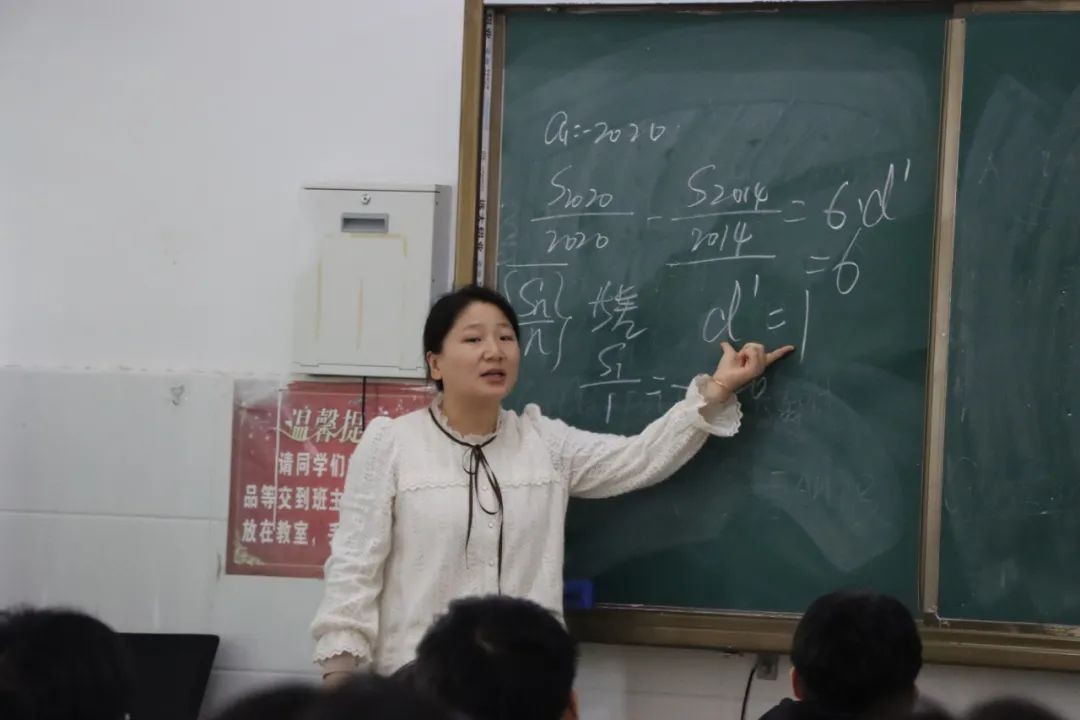 a₁=-2020
S₂₀₂₀/2020 - S₂₀₁₄/2014 = 6·d'
= 6
{Sn/n} d' = 1
S₁/1 =
温馨提
请同学们
品等交到班主
放在教室，